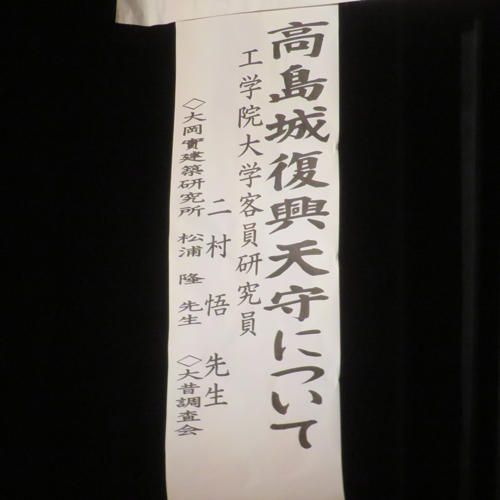 高島城復興天守について
工学院大学客員研究員
二村 悟 先生
◇大岡實建築研究所 松浦 隆 先生 ◇大昔調査会